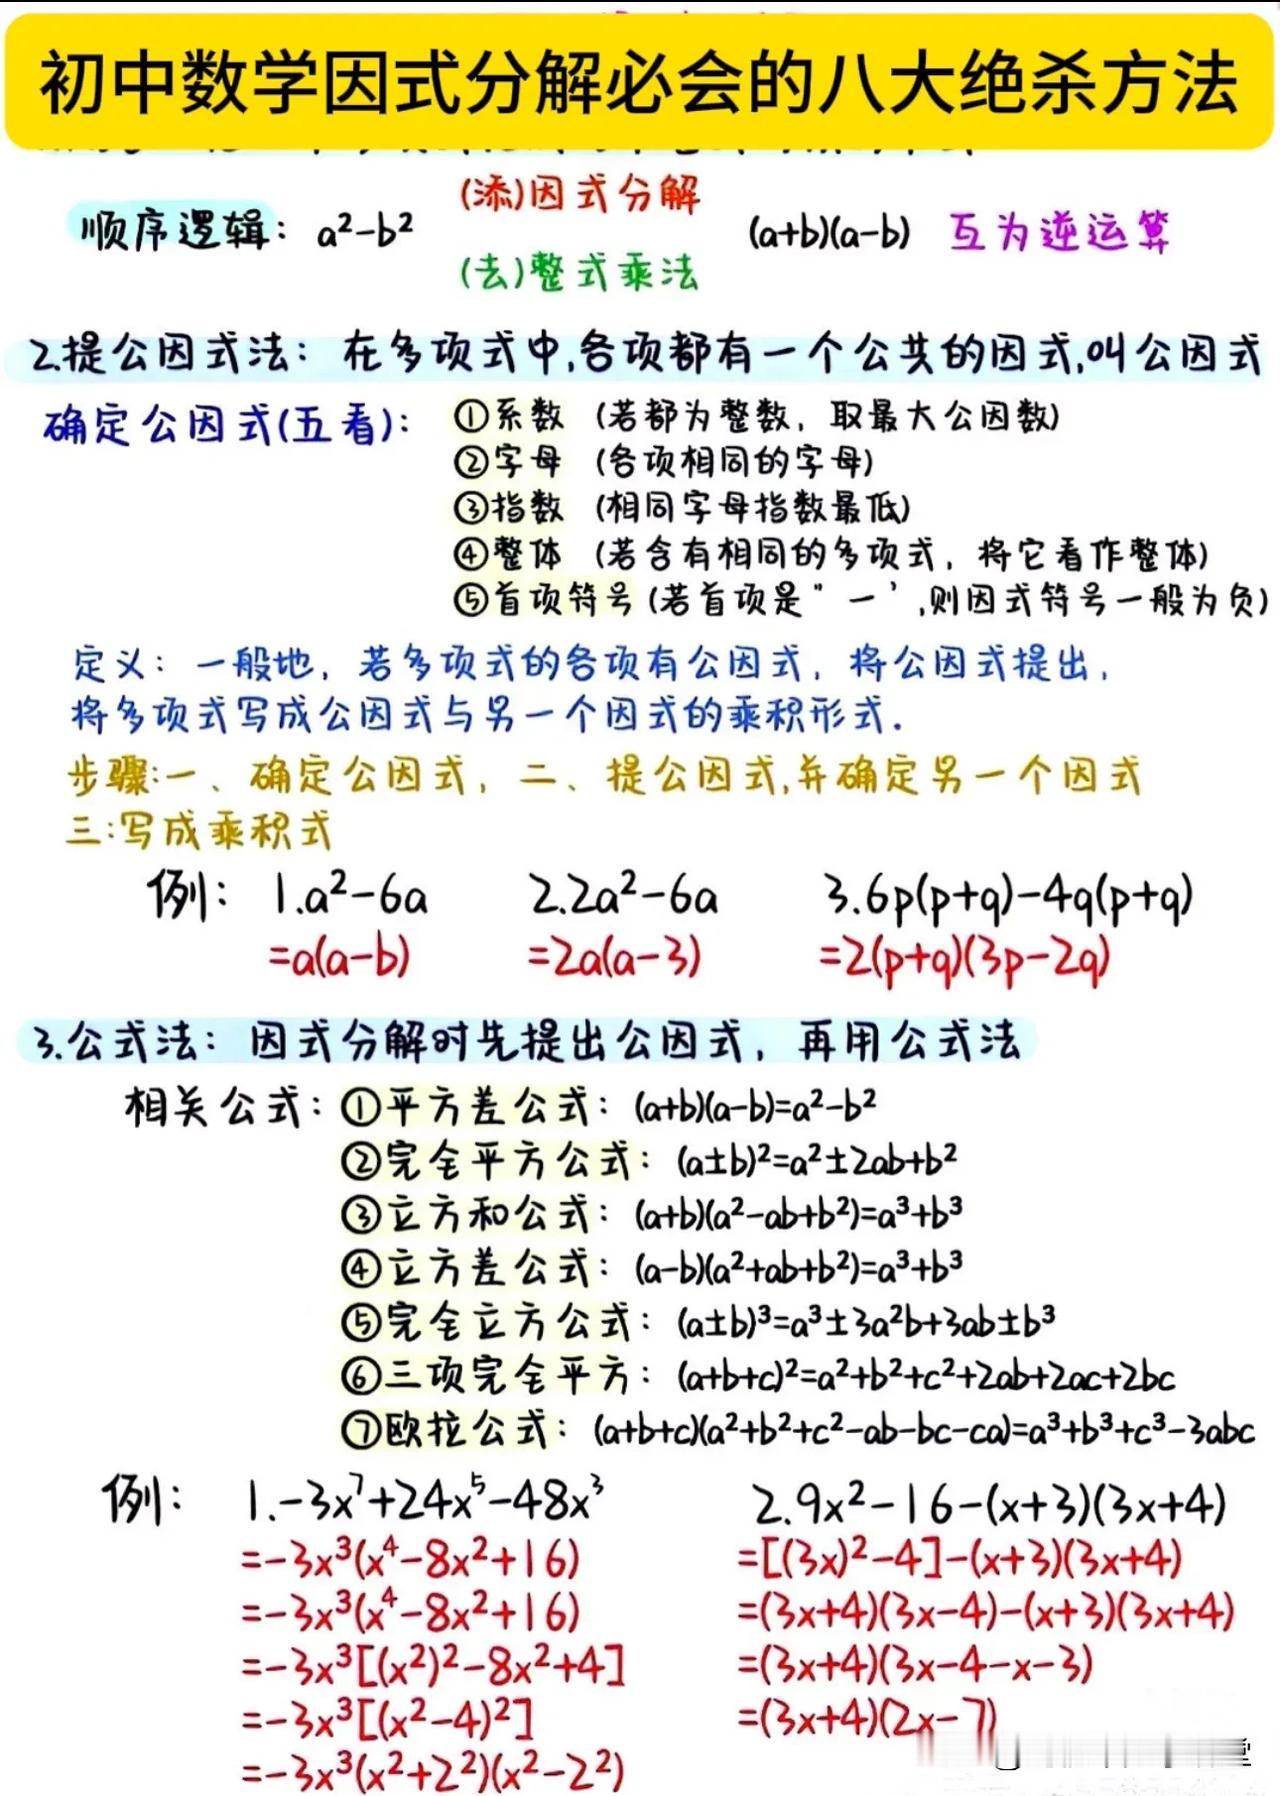 初中数学因式分解必会的八大绝杀方法
(添)因式分解
顺序逻辑: a²-b² (a+b)(a-b) 互为逆运算
(去)整式乘法
2.提公因式法: 在多项式中,各项都有一个公共的因式,叫公因式
确定公因式(五看): ①系数 (若都为整数, 取最大公因数)
②字母 (各项相同的字母)
③指数 (相同字母指数最低)
④整体 (若含有相同的多项式, 将它看作整体)
⑤首项符号(若首项是"一',则因式符号一般为负)
定义: 一般地, 若多项式的各项有公因式, 将公因式提出,
将多项式写成公因式与另一个因式的乘积形式.
步骤:一、确定公因式, 二、提公因式,并确定另一个因式
三:写成乘积式
例: 1.a²-6a 2.2a²-6a 3.6p(p+q)-4q(p+q)
=a(a-b) =2a(a-3) =2(p+q)(3p-2q)
3.公式法: 因式分解时先提出公因式, 再用公式法
相关公式: ①平方差公式: (a+b)(a-b)=a²-b²
②完全平方公式: (a±b)²=a²±2ab+b²
③立方和公式: (a+b)(a²-ab+b²)=a³+b³
④立方差公式: (a-b)(a²+ab+b²)=a³+b³
⑤完全立方公式: (a±b)³=a³±3a²b+3ab±b³
⑥三项完全平方: (a+b+c)²=a²+b²+c²+2ab+2ac+2bc
⑦欧拉公式: (a+b+c)(a²+b²+c²-ab-bc-ca)=a³+b³+c³-3abc
例: 1.-3x⁷+24x⁵-48x³ 2.9x²-16-(x+3)(3x+4)
=-3x³(x⁴-8x²+16) =[(3x)²-4]-(x+3)(3x+4)
=-3x³(x⁴-8x²+16) =(3x+4)(3x-4)-(x+3)(3x+4)
=-3x³[(x²)²-8x²+4] =(3x+4)(3x-4-x-3)
=-3x³[(x²-4)²] =(3x+4)(2x-7)
=-3x³(x²+2²)(x²-2²)